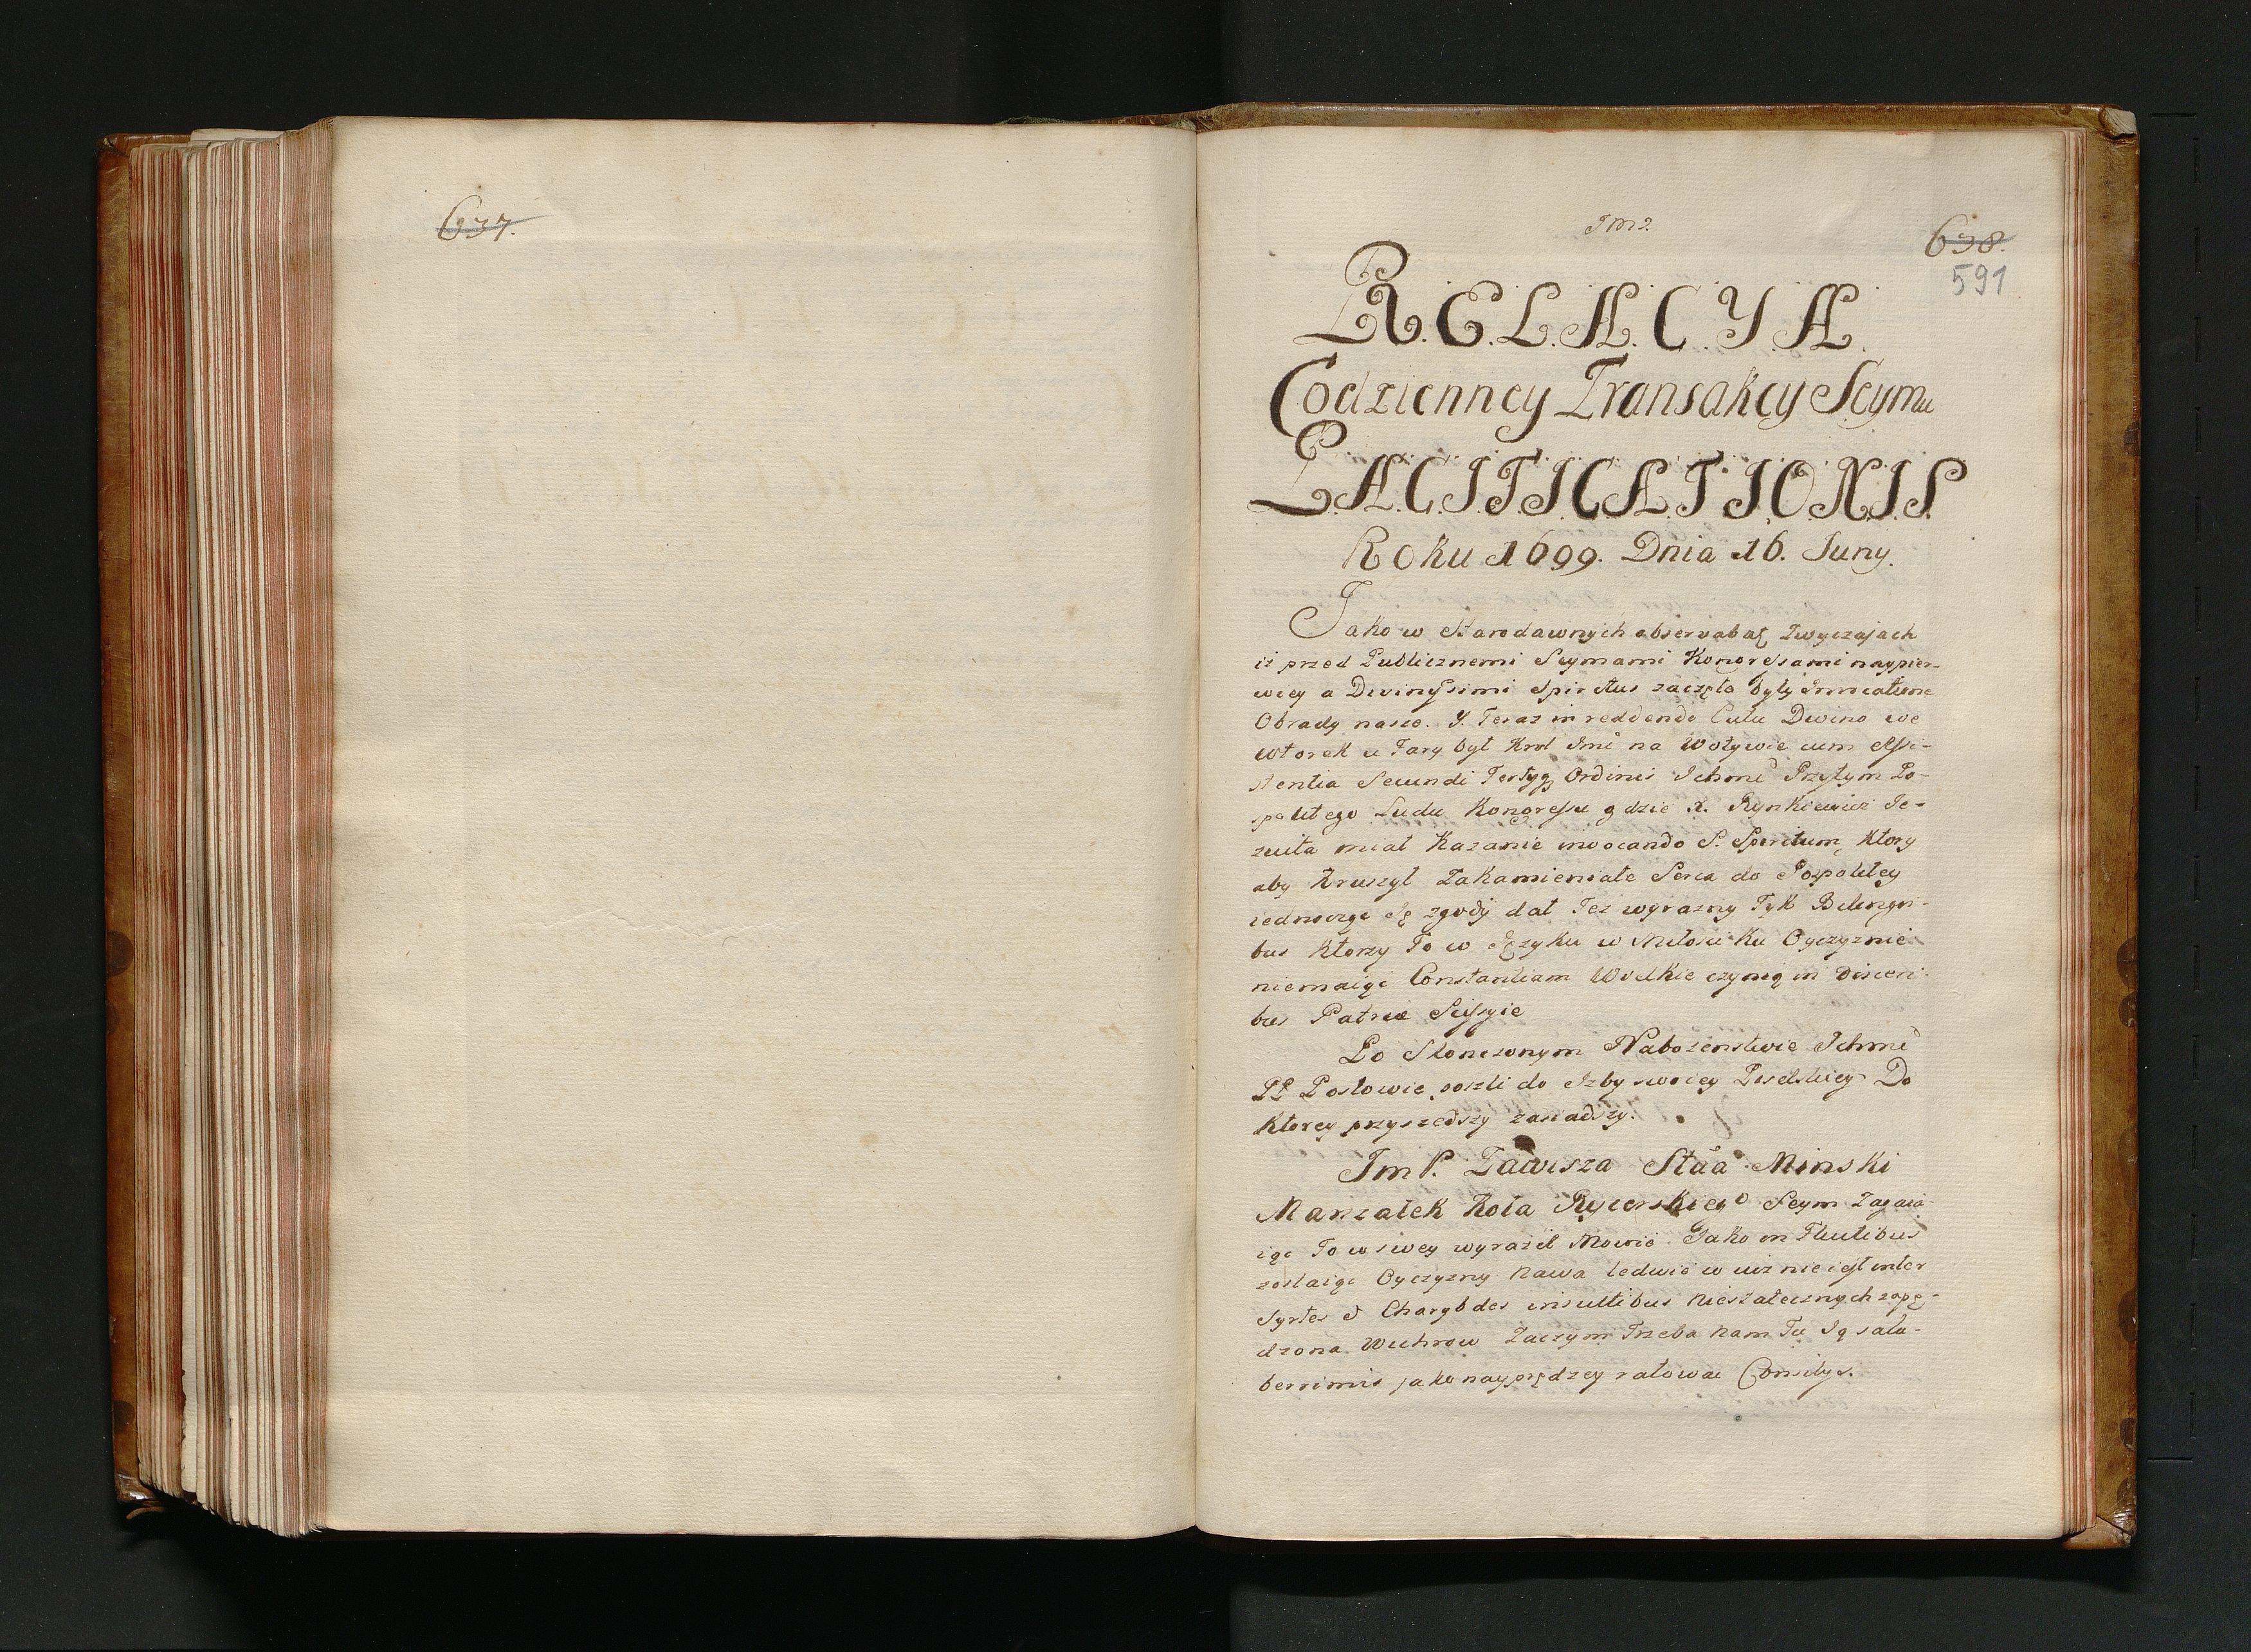 637.
638.
591
R.E.L.A.C.Y.A.
Codzienney Transakcy Seymu
PACIFICATIONIS
Roku 1699. Dnia 16. Juny.
Jako w Starodawnych observabat zwyczajach
iż przed Publicznemi Seymami Kongressami naypier-
wiey a Divinissimi Spiritus zaczęte były Invocatione
Obrady nasze. Y. Teraz in reddendo Cultu Divino we
wtorek u Fary był Krol Jmć na Wotywie cum Assi-
stentia Secundi Tertyq, Ordinis Ichmć Przytym Po-
spolitego Ludu Kongressu gdzie X. Rynkiewicz Je-
zuita miał Kazanie invocando S. Spiritum, Ktory
aby Kruszył Zakamieniałe Serca do Pospolitey
iednocząc Ię zgody dał Tez wyrazny Tyk Bilingvi-
bus Ktorzy To w Języku w Miłosci Ku Oyczyznie
niemaiąc Constantiam Wielkie czynią in visceri-
bus Patriæ Scissye
Po Skonczonym Nabozenstwie Ichmć
PP Posłowie poszli do Izby swoiey Poselskiey Do
Ktorey przyszedszy zasiadszy.
Jm P. Zawisza Staa Minski
Marszałek Koła Rycerskiego Seym Zagaia-
iąc To w swey wyraził Mowie. Jako in Fluctibus
zostaiąc Oyczyzny Nawa ledwie w niż nie iest inter
Syrtes & Charybdes insultibus Niestatecznych zapę-
dzona Wichrow Zaczym Trzeba Nam Tu Ią salu-
berrimis jako nayprędzey ratować Consilys.